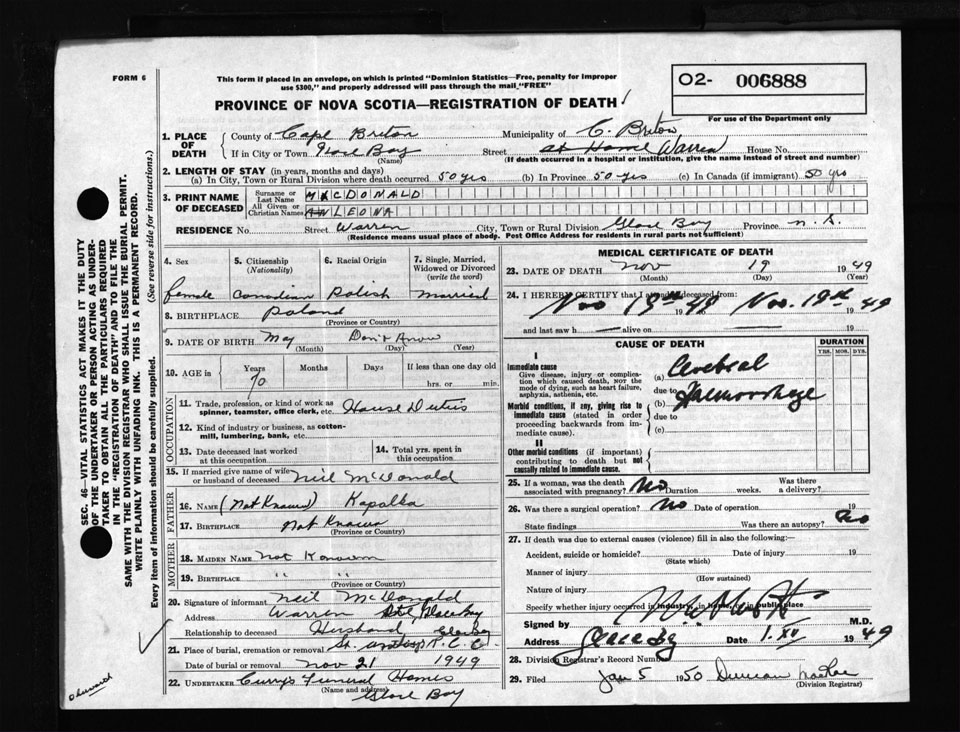 FORM 6
This form if placed in an envelope, on which is printed "Dominion Statistics—Free, penalty for improper
use $300," and properly addressed will pass through the mail "FREE"
O2- 006888
For use of the Department only
PROVINCE OF NOVA SCOTIA—REGISTRATION OF DEATH
1. PLACE OF DEATH County of Cape Breton Municipality of C. Breton
If in City or Town Glace Bay (Name) Street at Home Warren House No.
(If death occurred in a hospital or institution, give the name instead of street and number)
2. LENGTH OF STAY (in years, months and days)
(a) In City, Town or Rural Division where death occurred 50 yrs (b) In Province 50 yrs (c) In Canada (if immigrant) 50 yrs
3. PRINT NAME OF DECEASED Surname or Last Name McDONALD
All Given or Christian Names LEONA
RESIDENCE No. Street Warren City, Town or Rural Division Glace Bay Province N.S.
(Residence means usual place of abode. Post Office Address for residents in rural parts not sufficient)
SEC. 46—VITAL STATISTICS ACT MAKES IT THE DUTY
OF THE UNDERTAKER OR PERSON ACTING AS UNDER-
TAKER TO OBTAIN ALL THE PARTICULARS REQUIRED
IN THE "REGISTRATION OF DEATH" AND TO FILE THE
SAME WITH THE DIVISION REGISTRAR WHO SHALL ISSUE THE BURIAL PERMIT.
WRITE PLAINLY WITH UNFADING INK. THIS IS A PERMANENT RECORD.
Every item of information should be carefully supplied. (See reverse side for instructions.)
4. Sex 5. Citizenship (Nationality) 6. Racial Origin 7. Single, Married, Widowed or Divorced (write the word)
female Canadian Polish married
8. BIRTHPLACE Poland
(Province or Country)
9. DATE OF BIRTH May Don't Know
(Month) (Day) (Year)
10. AGE in Years Months Days If less than one day old
70 hrs. or min.
OCCUPATION
11. Trade, profession, or kind of work as spinner, teamster, office clerk, etc. House Duties
12. Kind of industry or business, as cotton-mill, lumbering, bank, etc.
13. Date deceased last worked at this occupation
14. Total yrs. spent in this occupation
15. If married give name of wife or husband of deceased Neil McDonald
FATHER
16. NAME (Not Known) Kapalka
17. BIRTHPLACE Not Known
MOTHER
18. MAIDEN NAME Not Known
19. BIRTHPLACE " "
(Province or Country)
20. Signature of informant Neil McDonald
Address Warren Glace Bay
Relationship to deceased Husband
21. Place of burial, cremation or removal
Date of burial or removal Nov 21 1949
22. UNDERTAKER Curry's Funeral Homes
(Name and address) Glace Bay
MEDICAL CERTIFICATE OF DEATH
23. DATE OF DEATH Nov 19 1949
(Month) (Day)
24. I HEREBY CERTIFY that I attended deceased from:
Nov 13th 1949 Nov. 19th 49
and last saw h alive on 19
CAUSE OF DEATH DURATION
YRS. MOS. DYS.
I
Immediate cause
Give disease, injury or complication which caused death, NOT the mode of dying, such as heart failure, asphyxia, asthenia, etc.
(a) Cerebral
due to
Morbid conditions, if any, giving rise to immediate cause (stated in order proceeding backwards from immediate cause).
(b) Haemorrhage
due to
(c)
II
Other morbid conditions (if important) contributing to death but not causally related to immediate cause.
25. If a woman, was the death associated with pregnancy? No Duration weeks. Was there a delivery?
26. Was there a surgical operation? No Date of operation
State findings Was there an autopsy? No
27. If death was due to external causes (violence) fill in also the following:—
Accident, suicide or homicide? Date of injury 19
(State which)
Manner of injury
(How sustained)
Nature of injury
Specify whether injury occurred in industry, in home, or in public place
Signed by M.D.
Address Glace Bay Date 1. XII 1949
28. Division Registrar's Record Number
29. Filed Jan 5 1950 Duncan MacRae
(Division Registrar)